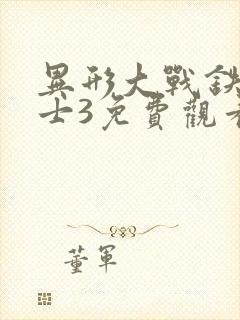 異形大戰鐵
士3免費觀看
董軍